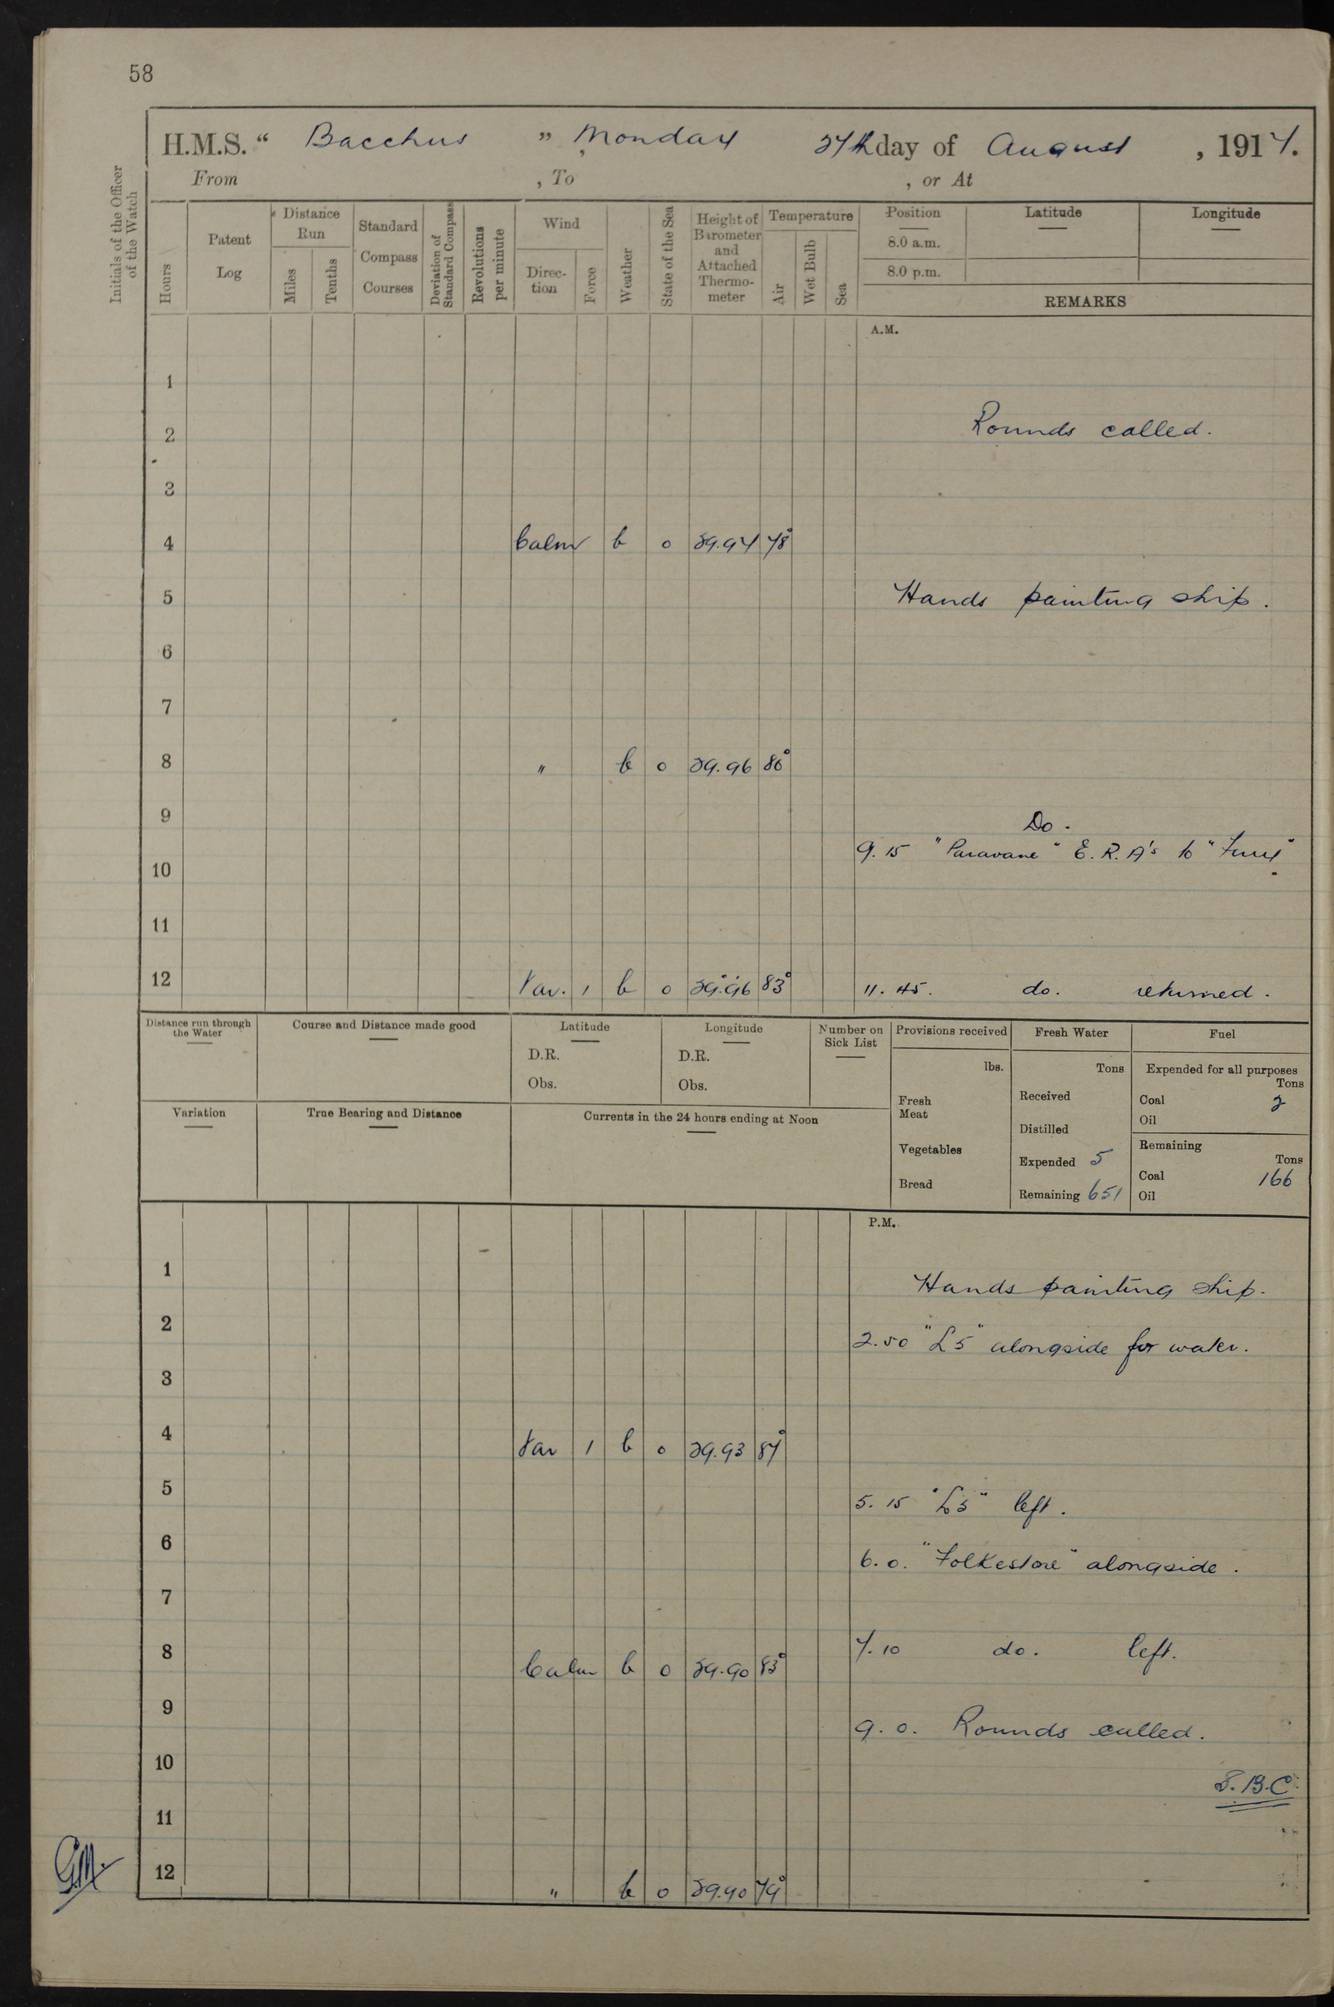 58
H.M.S. " Bacchus " Monday 27th day of August , 1917.
From , To , or At
Initials of the Officer of the Watch
Hours
Patent Log
Distance Run
Miles
Tenths
Standard Compass Courses
Deviation of Standard Compass
Revolutions per minute
Wind
Direction
Force
Weather
State of the Sea
Height of Barometer and Attached Thermometer
Temperature
Air
Wet Bulb
Sea
Position Latitude Longitude
8.0 a.m.
8.0 p.m.
REMARKS
A.M.
1
2 Rounds called.
3
4 Calm b 0 29.97 78°
5 Hands painting ship.
6
7
8 " b 0 29.96 80°
9 Do.
9.15 "Paravane" E.R.A's to "Fury"
10
11
12 Var. 1 b 0 29.96 83° 11.45. do. returned.
Distance run through the Water
Course and Distance made good
Latitude
D.R.
Obs.
Longitude
D.R.
Obs.
Number on Sick List
Provisions received
lbs.
Fresh Meat
Vegetables
Bread
Fresh Water
Tons
Received
Distilled
Expended 5
Remaining 651
Fuel
Expended for all purposes
Tons
Coal 2
Oil
Remaining
Tons
Coal 166
Oil
Variation
True Bearing and Distance
Currents in the 24 hours ending at Noon
P.M.
1 Hands painting ship.
2 2.50 "L5" alongside for water.
3
4 Var 1 b 0 29.93 87°
5 5.15 "L5" left.
6 6.0. "Folkestone" alongside.
7
8 Calm b 0 29.90 83° 7.10 do. left.
9 9.0. Rounds called.
10 S.B.C.
11
12 " b 0 29.90 79°
G.M.